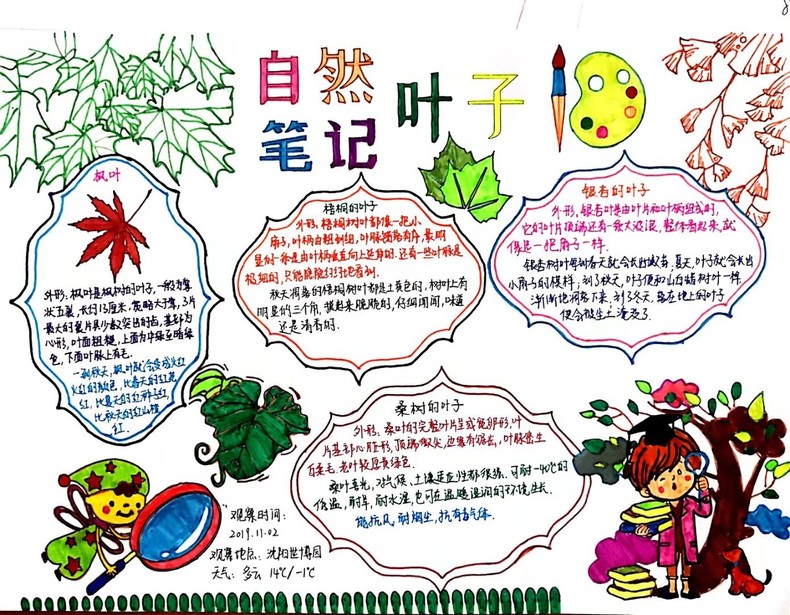 自然
笔记
叶子
枫叶
外形：枫叶是枫树的叶子，一般为掌
状五裂，长约13厘米，宽略大于长，3片
最大的裂片具少数突出的齿，基部为
心形，叶面粗糙，上面为中绿至暗绿
色，下面叶脉上有毛。
一到秋天，枫叶就会变成火红
火红的颜色，比春天的红花
红，比夏天的
比秋天的红山楂
红.
梧桐的叶子
外形：梧桐树叶都像一把小
扇子，叶柄由粗到细，叶脉
显的一条是由叶柄垂直向上延伸的.还有一些叶脉是
极细的，只能隐隐约约地看到.
秋天凋落的梧桐树叶都是土黄色的，树叶上有
明显的三个角，摸起来脆脆的，仔细闻闻，味道
还是清香的.
银杏的叶子
外形：银杏叶是由叶片和叶柄组成的，
它的叶片顶端还有一条大波浪，整体看起来，就
像是一把扇子一样.
银杏树叶每到春天就会长出嫩芽，夏天，叶子就会长出
小扇子的模样，到了秋天，叶子便和山白蜡树叶一样
渐渐地凋落下来，到了冬天，落在地上的叶子
便会被尘土淹没了.
桑树的叶子
外形：桑叶的完整叶片呈或宽卵形.叶
片基部心脏形，顶端微尖，边缘有锯齿，叶脉密生
白柔毛.老叶较厚黄绿色.
桑叶喜光，对气候、土壤适应性都很强.可耐-40℃的
低温，耐旱，耐水湿.也可在温暖湿润的环境生长.
能抗风，耐烟尘，抗有毒气体.
观察时间：
2019.11.02
观察地点：沈阳世博园
天气：多云 14℃/-1℃